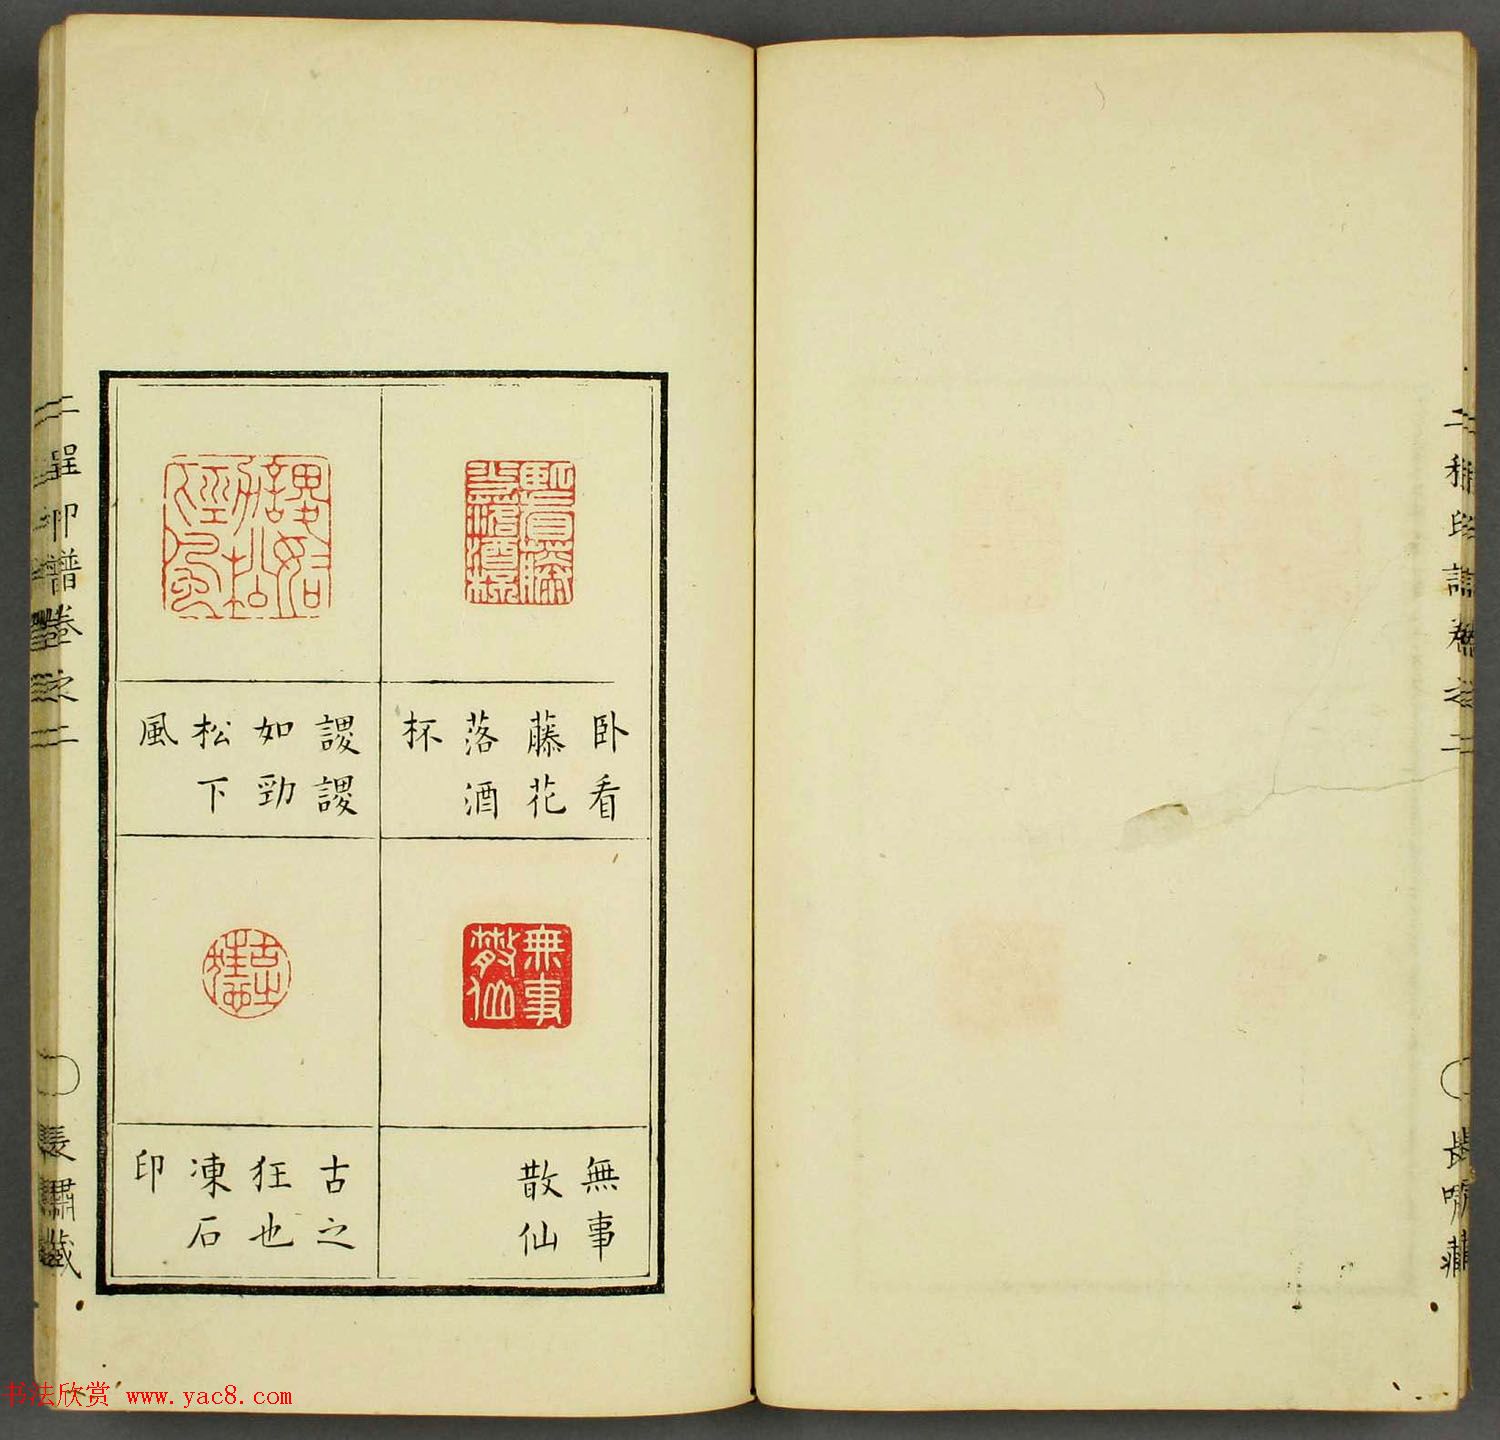 臥看
藤花
落酒
杯
謖謖
如勁
松下
風
無事
散仙
無事
散仙
古之
狂也
凍石
印
二程印譜卷之二
長嘯藏
二程印譜卷之二
長嘯藏
书法欣赏 www.yac8.com